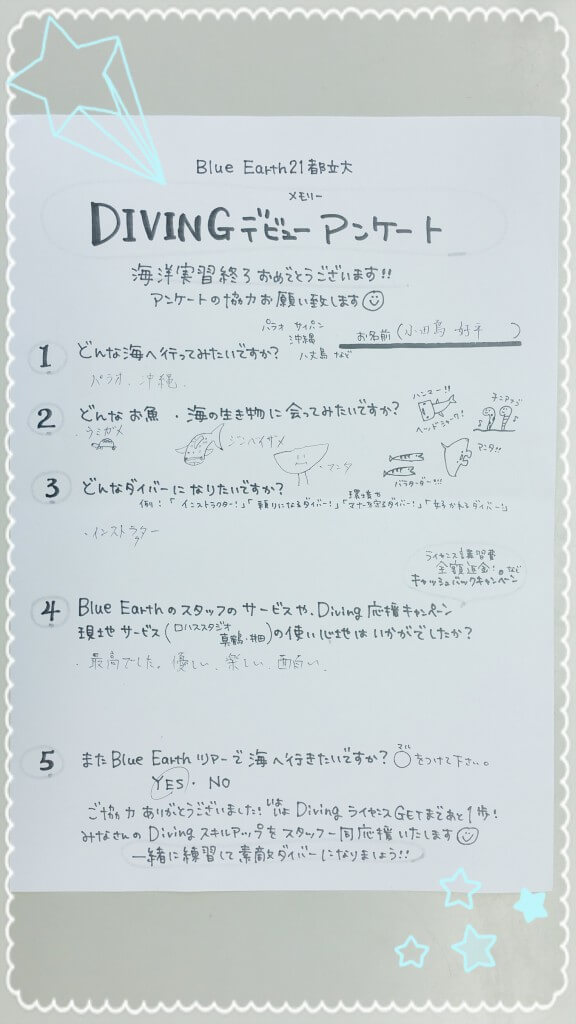 Blue Earth21都立大
メモリー
DIVINGデビューアンケート
海洋実習終了おめでとうございます!!
アンケートの協力お願い致します
お名前(小田 好平)
1 どんな海へ行ってみたいですか?
パラオ サイパン
沖縄
八丈島 など
パラオ、沖縄、
2 どんなお魚・海の生き物に会ってみたいですか?
ハンマー!!
ヘッドシャーク!
チンアナゴ
・ウミガメ
ジンベイザメ
・マンタ
マンタ!!
バラクーダー!!!
3 どんなダイバーになりたいですか?
例:「インストラクター!」「頼りになるダイバー!」「環境やマナーを守るダイバー!」
・インストラクター
ライセンス講習費
全額返金!など
キャッシュバックキャンペーン
4 Blue Earthのスタッフのサービスや、Diving応援キャンペーン
現地サービス(ロハススタジオ真鶴・井田)の使い心地はいかがでしたか?
・最高でした。優しい、楽しい、面白い、
5 またBlue Earthツアーで海へ行きたいですか? ○マルをつけて下さい。
YES・NO
ご協力ありがとうございました!いよいよDivingライセンスGETまであと1歩!
みなさんのDivingスキルアップをスタッフ一同応援いたします
一緒に練習して素敵ダイバーになりましょう!!